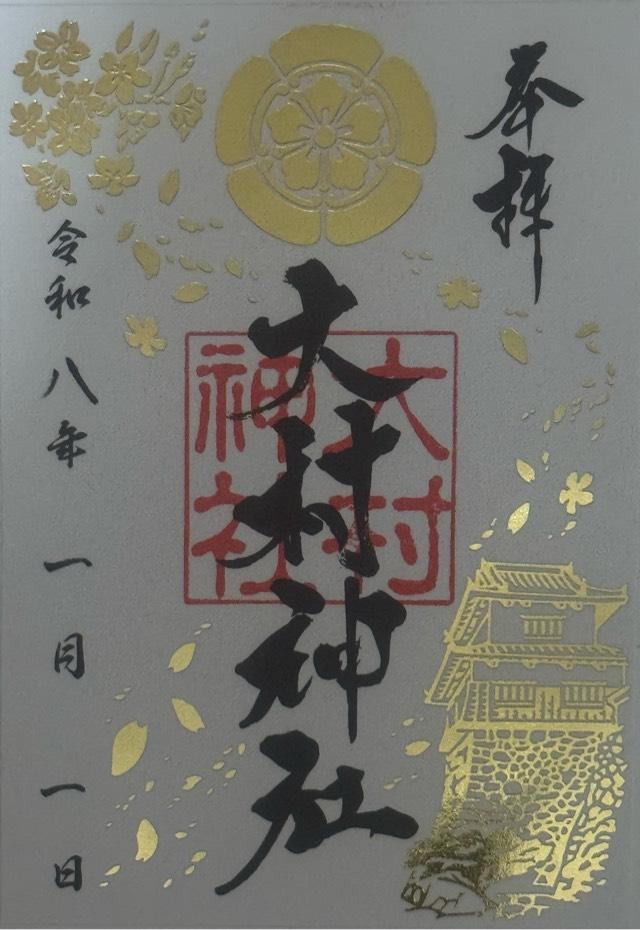 奉拝
大村神社
大村
神社
令和八年一月一日